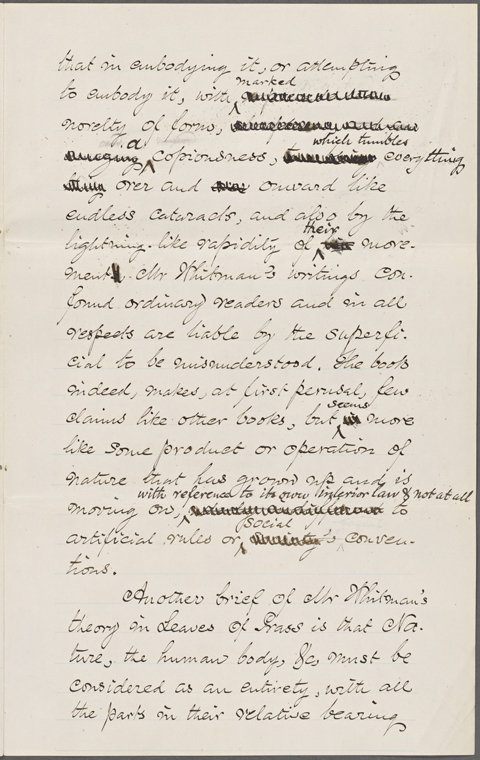 that in embodying it, or attempting
marked
to embody it, with
novelty of form,
a which tumbles
copiousness, everything
over and onward like
endless cataracts, and also by the
their
lightning-like rapidity of move-
ment. Mr Whitman's writings con-
found ordinary readers and in all
respects are liable by the superfi-
cial to be misunderstood. The book
indeed, makes, at first perusal, few
seems
claims like other books, but more
like some product or operation of
nature that has grown up and is
with reference to its own interior law & not at all
moving on, to
social
artificial rules or conven-
tions.
Another brief of Mr Whitman's
theory in Leaves of Grass is that Na-
ture, the human body, &c, must be
considered as an entirety, with all
the parts in their relative bearing